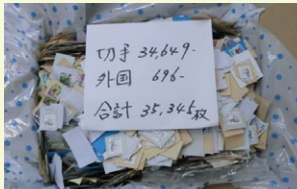 切手 34,649-
外国 696-
合計 35,345枚